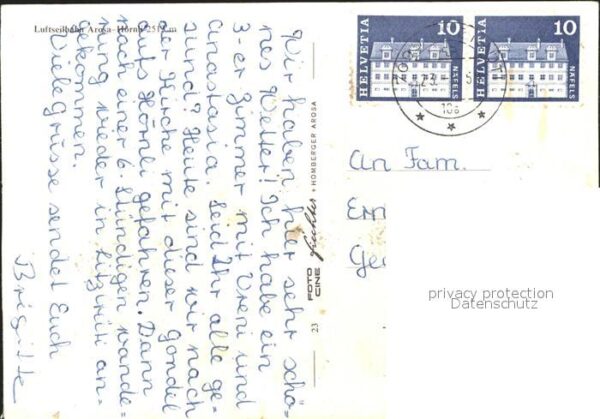 Luftseilbahn Arosa-Hörnli 2511 m
Wir haben hier sehr schö=
nes Wetter! Ich habe ein
3-er Zimmer mit Vreni und
Anastasia. Seid Ihr alle ge=
sund? Heute sind wir nach
der Kirche mit dieser Gondel
aufs Hörnli gefahren. Dann
nach einer 6-stündigen wande=
rung wieder in Litzirüti an=
gekommen.
Viele grüsse sendet Euch
Brigitte
23 FOTO CINE + HOMBERGER AROSA
HELVETIA 10 NÄFELS
HELVETIA 10 NÄFELS
An Fam.
Ern
Ge
privacy protection
Datenschutz